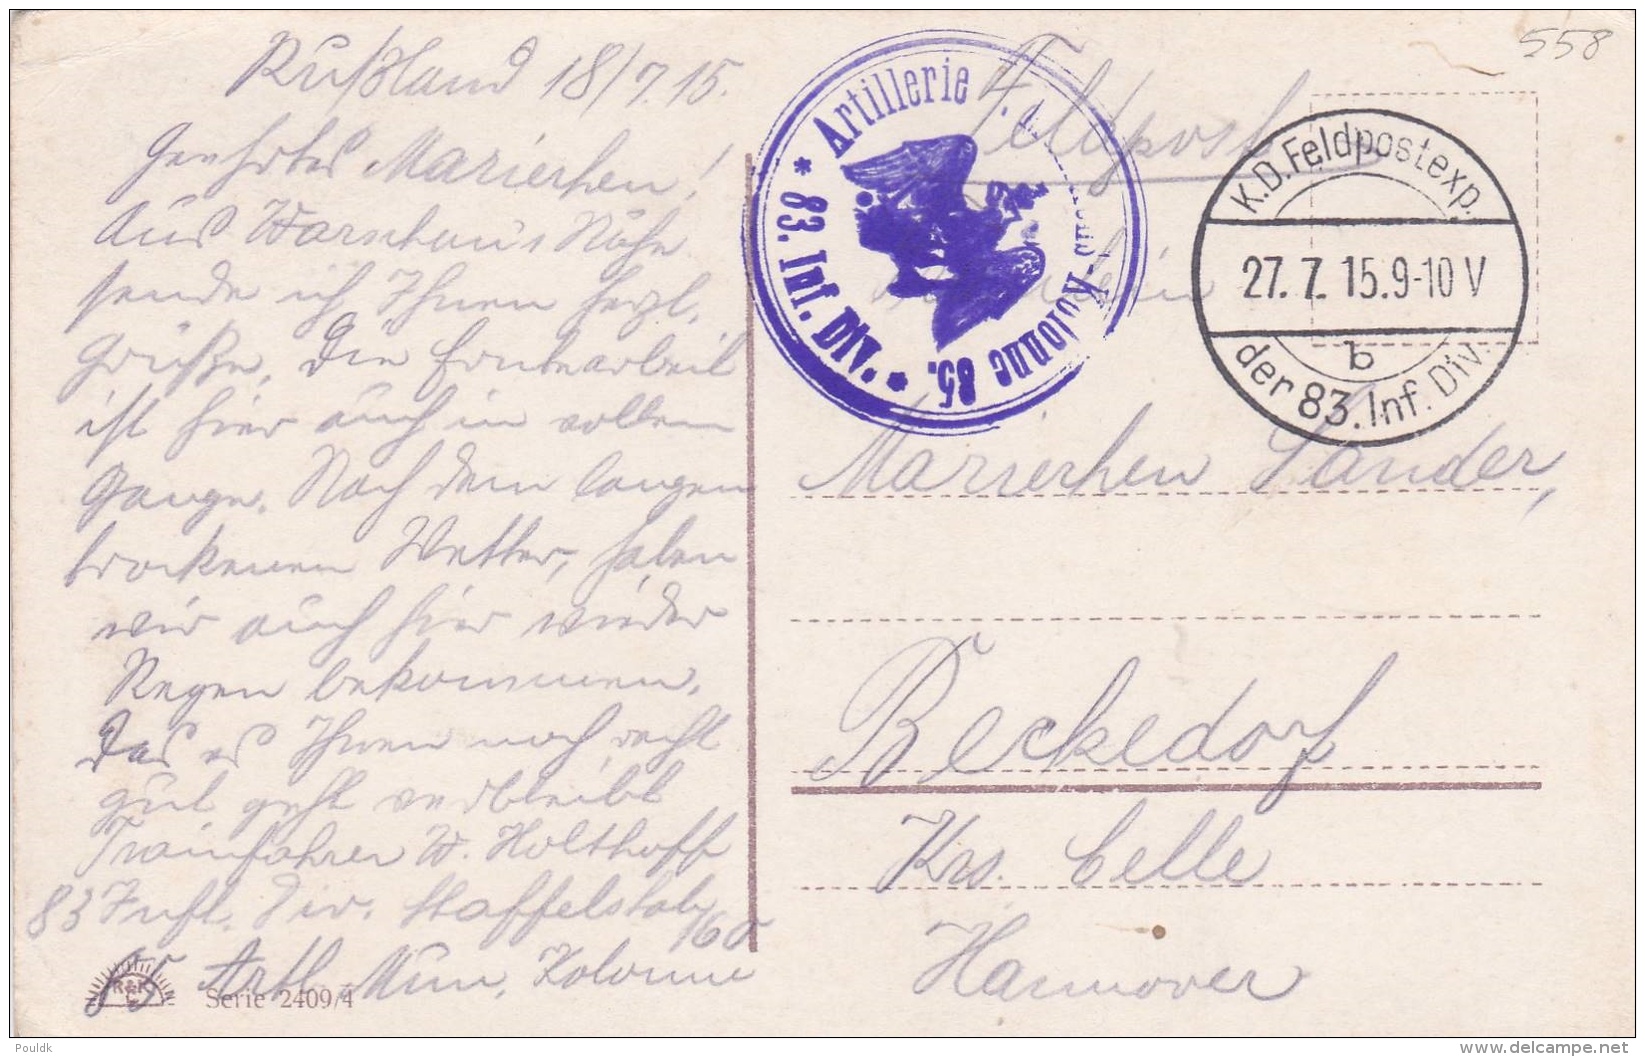 558
Rußland 18/7.15.
Geehrtes Marierhen!
Aus Warschau's Nähe
sende ich Ihnen herzl.
Grüße. Die Erntearbeit
ist hier auch in vollem
Gange. Nach dem langen
trockenen Wetter, haben
wir auch hier wieder
Regen bekommen.
Das es Ihnen noch recht
gut geht verbleibt
Trainfahrer W. Holthoff
83 Inft. Div. Staffelstab
85 Artl. Mun. Kolonne
R&K
L
Serie 2409/4
Feldpost
* Artillerie Mun.-Kolonne 85. *
83. Inf. Div.
K.D. Feldpostexp.
27.7.15.9-10V
b
der 83. Inf. Div.
Marierhen Sander,
Reckedorf
Krs. Celle
Hannover
Pouldk
delcampe.net